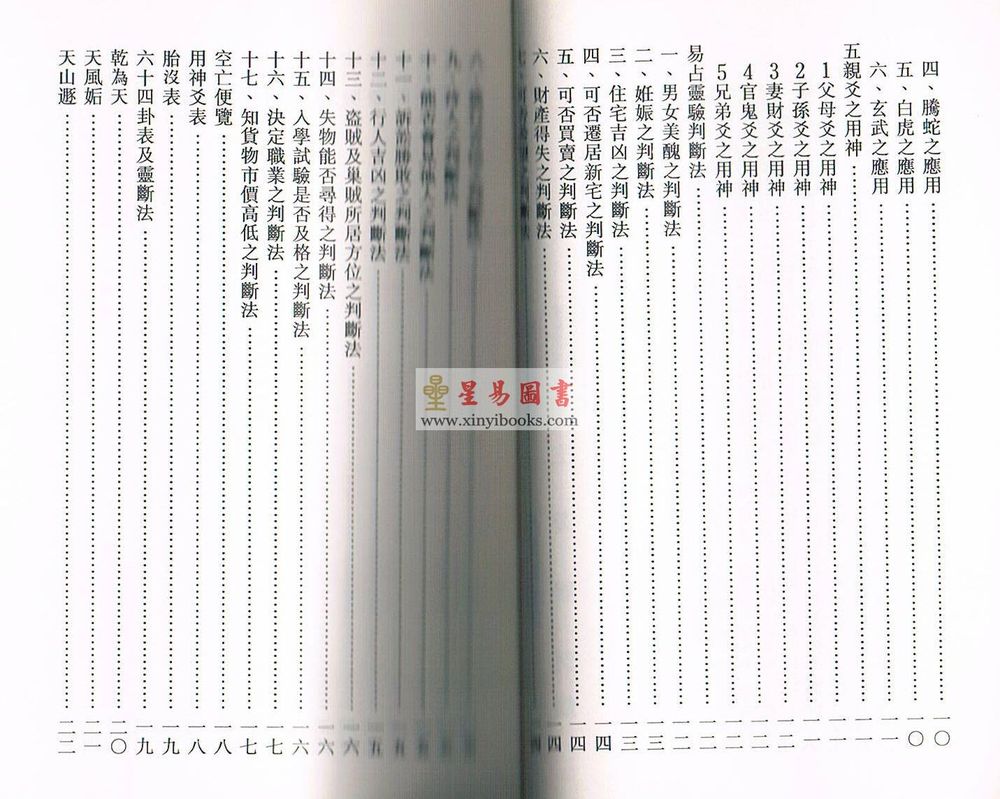 四、騰蛇之應用……一〇
五、白虎之應用……一〇
六、玄武之應用……一一
五親爻之用神……一一
1父母爻之用神……一一
2子孫爻之用神……一二
3妻財爻之用神……一二
4官鬼爻之用神……一二
5兄弟爻之用神……一二
易占靈驗判斷法……一二
一、男女美醜之判斷法……一二
二、姙娠之判斷法……一三
三、住宅吉凶之判斷法……一三
四、可否遷居新宅之判斷法……一四
五、可否買賣之判斷法……一四
六、財產得失之判斷法……一四
十一、訴訟勝敗之判斷法……一五
十二、行人吉凶之判斷法……一五
十三、盜賊及巢賊所居方位之判斷法……一六
十四、失物能否尋得之判斷法……一六
十五、入學試驗是否及格之判斷法……一六
十六、決定職業之判斷法……一七
十七、知貨物市價高低之判斷法……一七
空亡便覽……一八
用神爻表……一八
胎沒表……一九
六十四卦表及靈斷法……一九
乾為天……二〇
天風姤……二一
天山遯……二二
星易圖書
www.xinyibooks.com